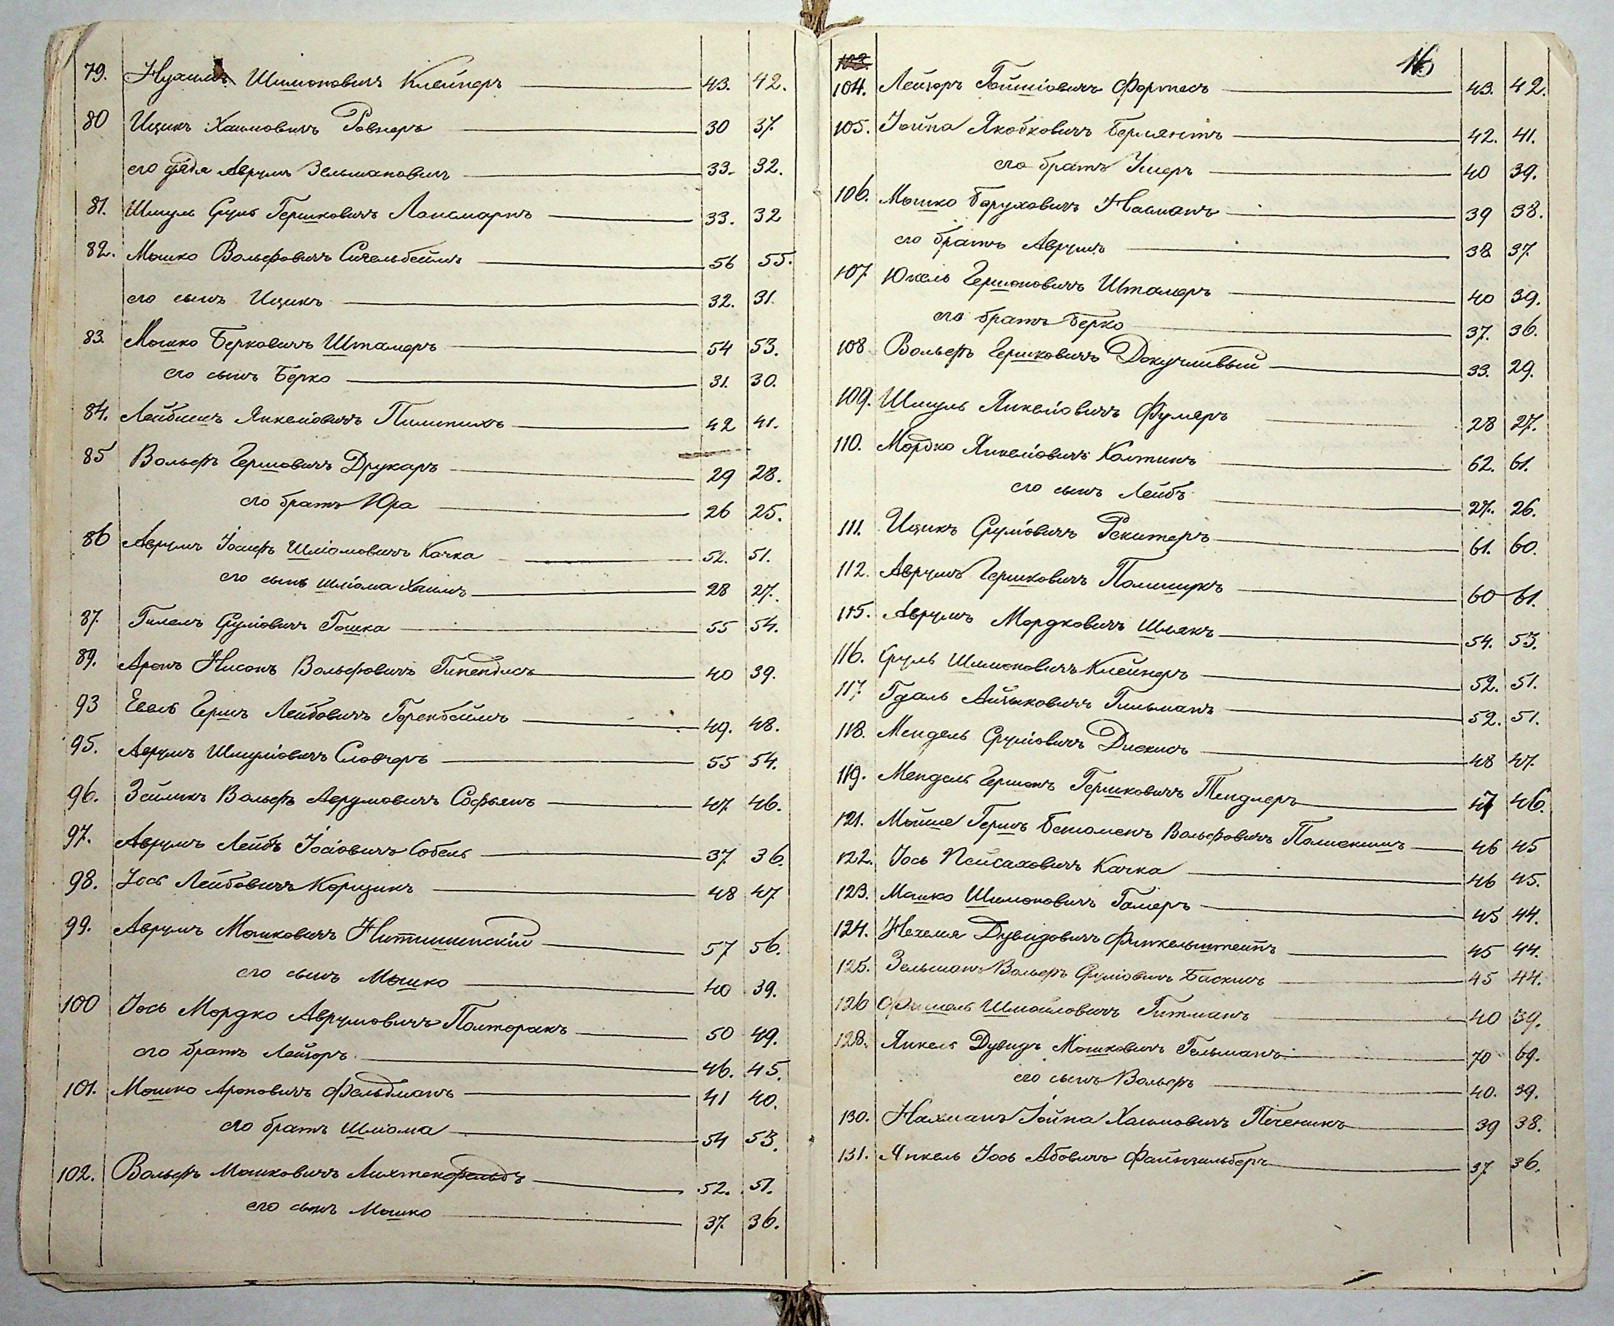 79. Нухимъ Шимоновичъ Клейнеръ 43. 42.
80 Ицикъ Хаимовичъ Ровнеръ 30 37.
его дядя Аврумъ Зельмановичъ 33. 32.
81. Шмуль Сруль Гершковичъ 33. 32
82. Мошко Вольфовичъ 56 55.
его сынъ Ицикъ 32. 31.
83. Мошко Берковичъ Штамеръ 54 53.
его сынъ Берко 31. 30.
84. Лейбишъ Янкеліовичъ 42 41.
85 Вольфъ Гершовичъ Друкаръ 29 28.
его братъ Юра 26 25.
86 Аврумъ Іосифъ Шліомовичъ Качка 52. 51.
его сынъ Шліома Хаимъ 28 27.
87. Гилель Сруліовичъ Гошка 55 54.
89. Аронъ Нисонъ Вольфовичъ 40 39.
93 Евель Гершъ Лейбовичъ Горенбеймъ 49. 48.
95. Аврумъ Шмуліовичъ 55 54.
96. Зейликъ Вольфъ Аврумовичъ 47 46.
97. Аврумъ Лейбъ Іосіовичъ Собель 37 36
98. Іось Лейбовичъ Корчикъ 48 47
99. Аврумъ Мошковичъ 57 56.
его сынъ Мошко 40 39.
100 Іось Мордко Аврумовичъ Полторакъ 50 49.
его братъ Лейзоръ 46. 45.
101. Мошко Ароновичъ Фельдманъ 41 40.
его братъ Шліома 54 53.
102. Вольфъ Мошковичъ Лихтенфельдъ 52. 51.
его сынъ Мошко 37. 36.
16
103.
104. Лейзоръ Фортесъ 43. 42.
105. Іойна Якобковичъ 42. 41.
его братъ Ушеръ 40 39.
106. Мошко Боруховичъ Насманъ 39 38.
его братъ Аврумъ 38 37.
107. Юкель Гершоновичъ Штамеръ 40 39.
его братъ Берко 37. 36.
108 Вольфъ Гершковичъ Докучливый 33. 29.
109. Шмуль Янкеліовичъ Фумеръ 28 27.
110. Мордко Янкеліовичъ Колтикъ 62. 61.
его сынъ Лейбъ 27. 26.
111. Ицикъ Сруліовичъ 61. 60.
112. Аврумъ Гершковичъ Полищукъ 60 61.
115. Аврумъ Мордковичъ Шлякъ 54. 53.
116. Сруль Шимоновичъ Клейнеръ 52. 51.
117. Гдаль Айзыковичъ Гильманъ 52. 51.
118. Мендель Сруліовичъ 48 47.
119. Мендель Гершонъ Гершковичъ Тендлеръ 47 46.
121. Мойше Гершъ Вольфовичъ 46 45
122. Іось Пейсаховичъ Качка 46 45.
123. Мошко Шимоновичъ Галперъ 45 44.
124. Нехемія Дувидовичъ Финкельштейнъ 45 44.
125. Зельманъ Вольфъ Сруліовичъ Баскинъ 45 44.
126 Фишель Шмойловичъ Гитманъ 40 39.
128. Янкель Дувидъ Мошковичъ Гельманъ 70 69.
его сынъ Вольфъ 40. 39.
130. Нахманъ Іойна Хаимовичъ Печеникъ 39 38.
131. Янкель Іось Абовичъ Файнзильберъ 37. 36.